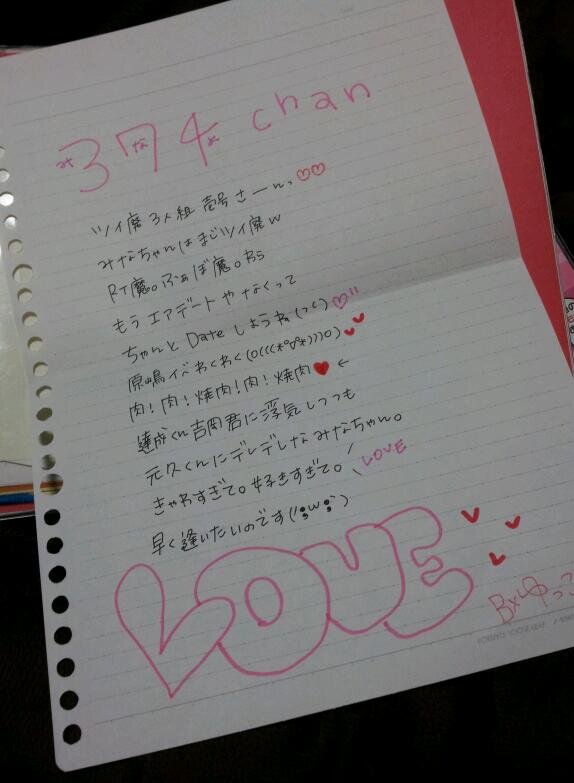 374 chan
みなみ
ツイ廃3人組 壱号さーん、♡♡
みなちゃんはまじツイ廃w
RT魔。ふぁぼ魔。Bs
もうエアデートやなくって
ちゃんとDateしようね(っc)♡"
原嶋イベわくわく(o(((*°▽°*)))o)
肉!肉!焼肉!肉!焼肉♥←
達成くん吉岡君に浮気しつつも
元久くんにデレデレなみなちゃん。
きゃわすぎて。好きすぎて。 LOVE
早く逢いたいのです(´;ω;`)
LOVE
By ゆっこ